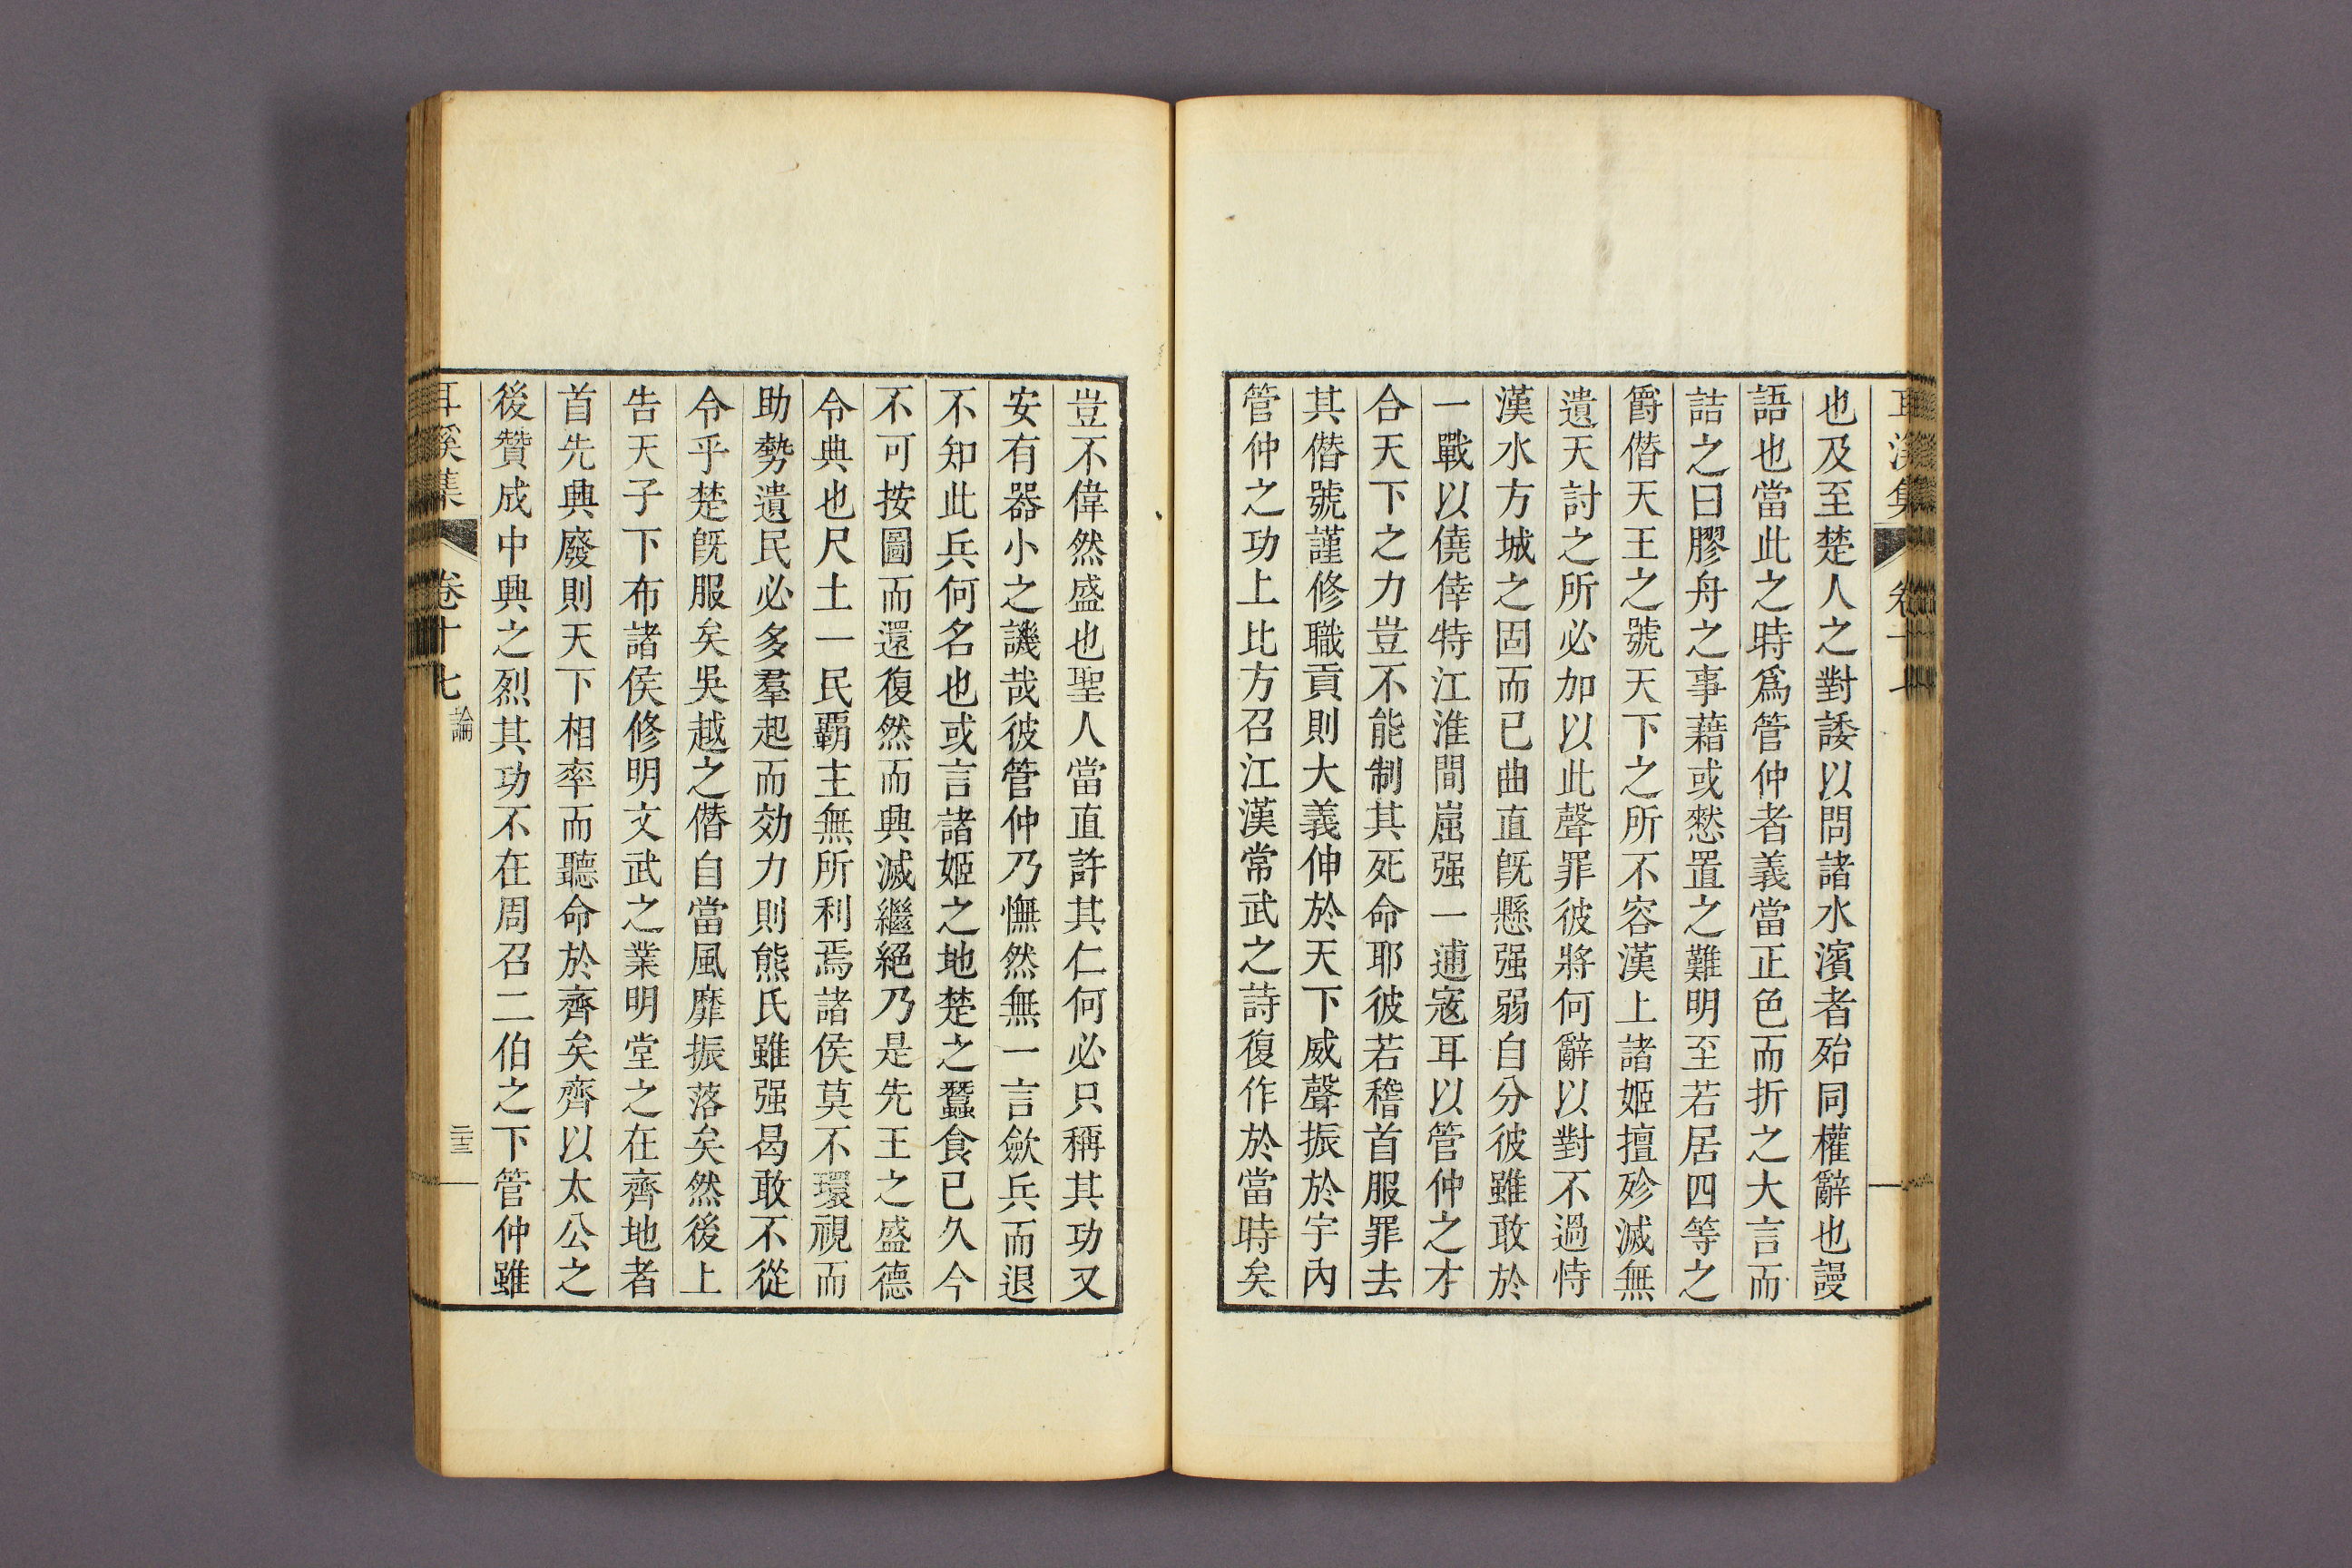 耳溪集 卷十七
也及至楚人之對諉以問諸水濱者殆同權辭也謾
語也當此之時爲管仲者義當正色而折之大言而
詰之曰膠舟之事藉或愁置之難明至若居四等之
爵僭天王之號天下之所不容漢上諸姬擅殄滅無
遺天討之所必加以此聲罪彼將何辭以對不過恃
漢水方城之固而已曲直旣懸强弱自分彼雖敢於
一戰以僥倖特江淮間崫强一逋寇耳以管仲之才
合天下之力豈不能制其死命耶彼若稽首服罪去
其僭號謹修職貢則大義伸於天下威聲振於宇內
管仲之功上比方召江漢常武之詩復作於當時矣
豈不偉然盛也聖人當直許其仁何必只稱其功又
安有器小之譏哉彼管仲乃憮然無一言歛兵而退
不知此兵何名也或言諸姬之地楚之蠶食已久今
不可按圖而還復然而興滅繼絕乃是先王之盛德
令典也尺土一民覇主無所利焉諸侯莫不環視而
助勢遺民必多羣起而効力則熊氏雖强曷敢不從
令乎楚旣服矣吳越之僭自當風靡振落矣然後上
告天子下布諸侯修明文武之業明堂之在齊地者
首先興廢則天下相率而聽命於齊矣齊以太公之
後贊成中興之烈其功不在周召二伯之下管仲雖
耳溪集 卷十七 論 二十三